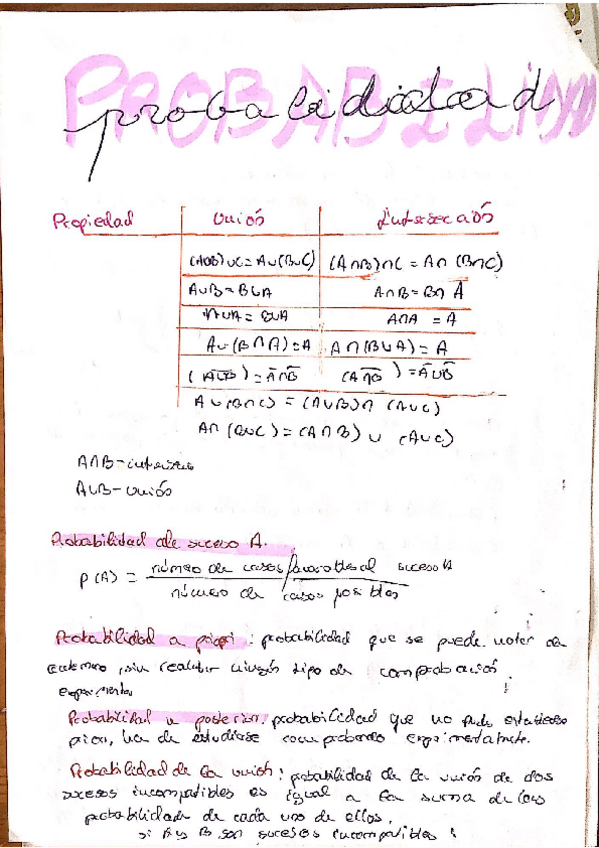 PROBABILIDAD
probabilidad
Propiedad Unión Intersección
(A∪B)∪C=A∪(B∪C) (A∩B)∩C = A∩ (B∩C)
A∪B=B∪A A∩B=B∩A
A∩A = A
A∪(B∩A)=A A∩(B∪A)=A
(A̅∪̅B̅)=A̅∩B̅ (A̅∩̅B̅)=A̅∪B̅
A∪(B∩C) = (A∪B)∩ (A∪C)
A∩(B∪C)=(A∩B) ∪ (A∪C)
A∩B-
A∪B-unión
Probabilidad de suceso A.
P(A) = número de casos favorables al suceso A
número de casos posibles
Probabilidad a priori: probabilidad que se puede de
antemano, sin realizar ningún tipo de comprobación
experimental
Probabilidad a posteriori: probabilidad que no puede
priori, ha de estudiarse comprobando
Probabilidad de la unión: probabilidad de la unión de dos
sucesos incompatibles es igual a la suma de las
probabilidade de cada uno de ellos.
si A y B son sucesos incompatibles: